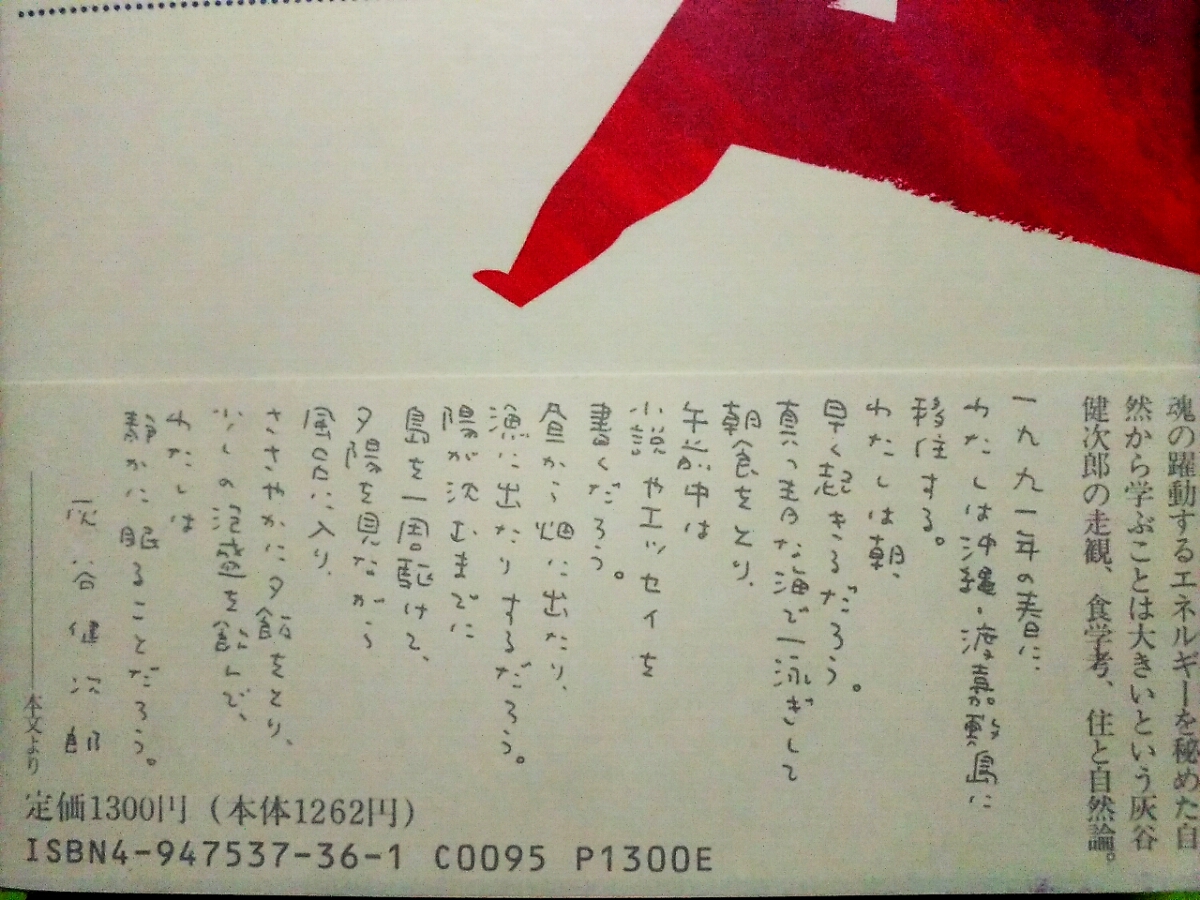 魂の躍動するエネルギーを秘めた自
然から学ぶことは大きいという灰谷
健次郎の走観、食学考、住と自然論。
一九九一年の春に、
わたしは沖縄・渡嘉敷島に
移住する。
わたしは朝、
早く起きるだろう。
真っ青な海で一泳ぎして
朝食をとり、
午前中は
小説やエッセイを
書くだろう。
昼から畑に出たり、
漁に出たりするだろう。
陽が沈むまでに
島を一周駆けて、
夕陽を見ながら
風呂に入り、
ささやかに夕飯をとり、
少しの泡盛を飲んで、
わたしは
静かに眠ることだろう。
灰谷健次郎
本文より
定価1300円(本体1262円)
ISBN4-947537-36-1 C0095 P1300E